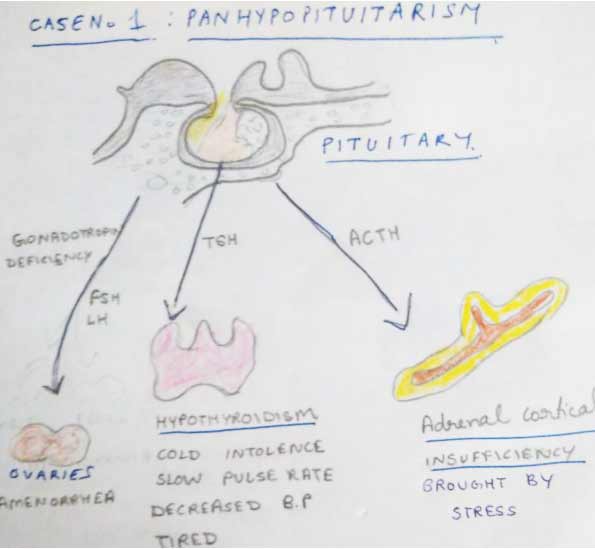 CASE No 1 : PANHYPOPITUITARISM
PITUITARY.
GONADOTROPIN
DEFICIENCY
FSH
LH
TSH
ACTH
OVARIES
AMENORRHEA
HYPOTHYROIDISM
COLD INTOLENCE
SLOW PULSE RATE
DECREASED B.P
TIRED
Adrenal cortical
INSUFFICIENCY
BROUGHT BY
STRESS